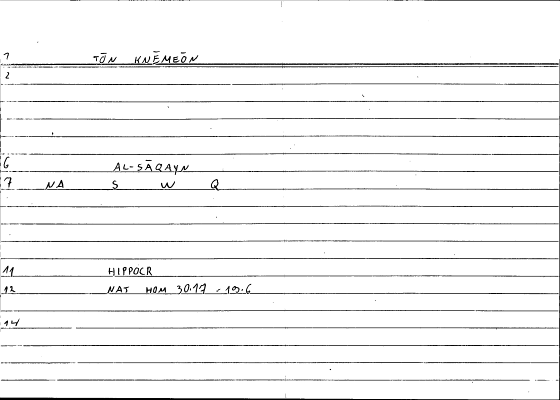 1 TŌN KNĒMEŌN
2
6 AL-SĀQAYN
7 NA S W Q
11 HIPPOCR
12 NAT HOM 30.17 - 19.6
14